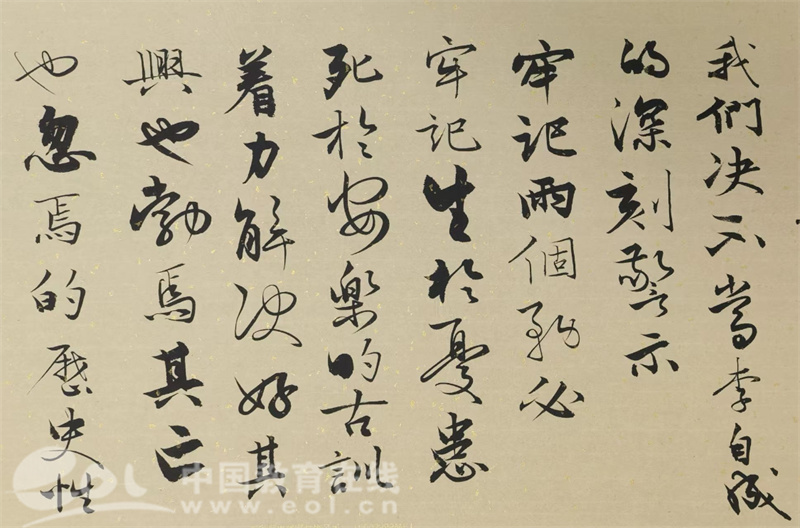 我們决不當李自成
的深刻警示
牢記兩個務必
牢記生於憂患
死於安樂的古訓
着力解决好其
興也勃焉其亡
也忽焉的歷史性
eol 中国教育在线
www.eol.cn